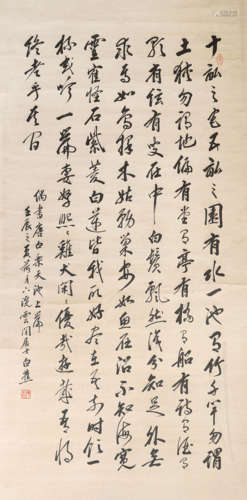 十畝之宅五畝之園有水一池有竹千竿勿謂
土狹勿謂地偏有堂有亭有橋有船有詩有酒
歌有弦有叟在中白鬚飄然識分知足外無
求焉如鳥擇木姑務巢安如魚在沼不知海寬
靈鶴怪石紫菱白蓮皆我所好盡在吾前時引一
杯或吟一篇妻孥熙熙雞犬閑閑優哉游哉吾將
終老乎其間
偶書唐白樂天池上篇
壬辰之春雲間居士白蕉